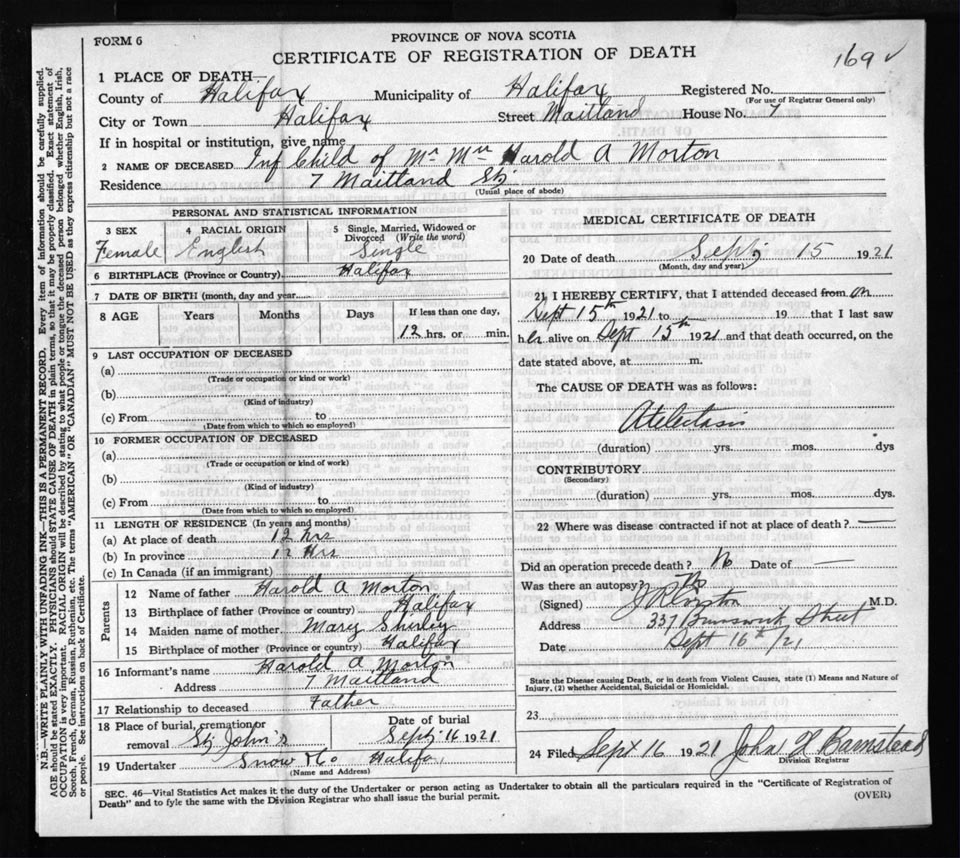 FORM 6
PROVINCE OF NOVA SCOTIA
CERTIFICATE OF REGISTRATION OF DEATH
169 ✓
1 PLACE OF DEATH—
County of Halifax Municipality of Halifax Registered No.
(For use of Registrar General only)
City or Town Halifax Street Maitland House No. 7
If in hospital or institution, give name
2 NAME OF DECEASED Inf Child of Mr Mrs Harold A Morton
Residence 7 Maitland St;
(Usual place of abode)
PERSONAL AND STATISTICAL INFORMATION
3 SEX 4 RACIAL ORIGIN 5 Single, Married, Widowed or Divorced (Write the word)
Female English Single
6 BIRTHPLACE (Province or Country) Halifax
7 DATE OF BIRTH (month, day and year)
8 AGE Years Months Days If less than one day,
12 hrs. or min.
9 LAST OCCUPATION OF DECEASED
(a)
(Trade or occupation or kind or work)
(b)
(Kind of industry)
(c) From to
(Date from which to which so employed)
10 FORMER OCCUPATION OF DECEASED
(a)
(Trade or occupation or kind of work)
(b)
(Kind of industry)
(c) From to
(Date from which to which so employed)
11 LENGTH OF RESIDENCE (In years and months)
(a) At place of death 12 hrs
(b) In province 12 Hrs
(c) In Canada (if an immigrant)
Parents
12 Name of father Harold A Morton
13 Birthplace of father (Province or country) Halifax
14 Maiden name of mother Mary Shirley
15 Birthplace of mother (Province or country) Halifax
16 Informant's name Harold A Morton
Address 7 Maitland
17 Relationship to deceased Father
18 Place of burial, cremation or removal St; John's
Date of burial Sept; 16 1921
19 Undertaker Snow & Co Halifax
(Name and Address)
MEDICAL CERTIFICATE OF DEATH
20 Date of death Sept; 15 1921
(Month, day and year)
21 I HEREBY CERTIFY, that I attended deceased from on
Sept 15th 1921 to 19 that I last saw
her alive on Sept 15th 1921 and that death occurred, on the
date stated above, at m.
The CAUSE OF DEATH was as follows:
Atelectasis
(duration) yrs. mos. dys
CONTRIBUTORY
(Secondary)
(duration) yrs. mos. dys.
22 Where was disease contracted if not at place of death? —
Did an operation precede death? No Date of —
Was there an autopsy? No
(Signed) M.D.
Address 337 Brunswick Street
Date Sept 16th/21
State the Disease causing Death, or in death from Violent Causes, state (1) Means and Nature of
Injury, (2) whether Accidental, Suicidal or Homicidal.
23
24 Filed Sept 16 1921 John Barnstead
Division Registrar
SEC. 46—Vital Statistics Act makes it the duty of the Undertaker or person acting as Undertaker to obtain all the particulars required in the "Certificate of Registration of
Death" and to fyle the same with the Division Registrar who shall issue the burial permit.
(OVER)
N.B.—WRITE PLAINLY WITH UNFADING INK—THIS IS A PERMANENT RECORD. Every item of information should be carefully supplied.
AGE should be stated EXACTLY. PHYSICIANS should STATE CAUSE OF DEATH in plain terms, so that it may be properly classified. Exact statement of
OCCUPATION is very important. RACIAL ORIGIN will be described by stating to what people or tongue the deceased person belonged, whether English, Irish,
Scotch, French, German, Russian, Ruthenian, etc. The terms "AMERICAN" OR "CANADIAN" MUST NOT BE USED as they express citizenship but not a race
or people. See instructions on back of Certificate.